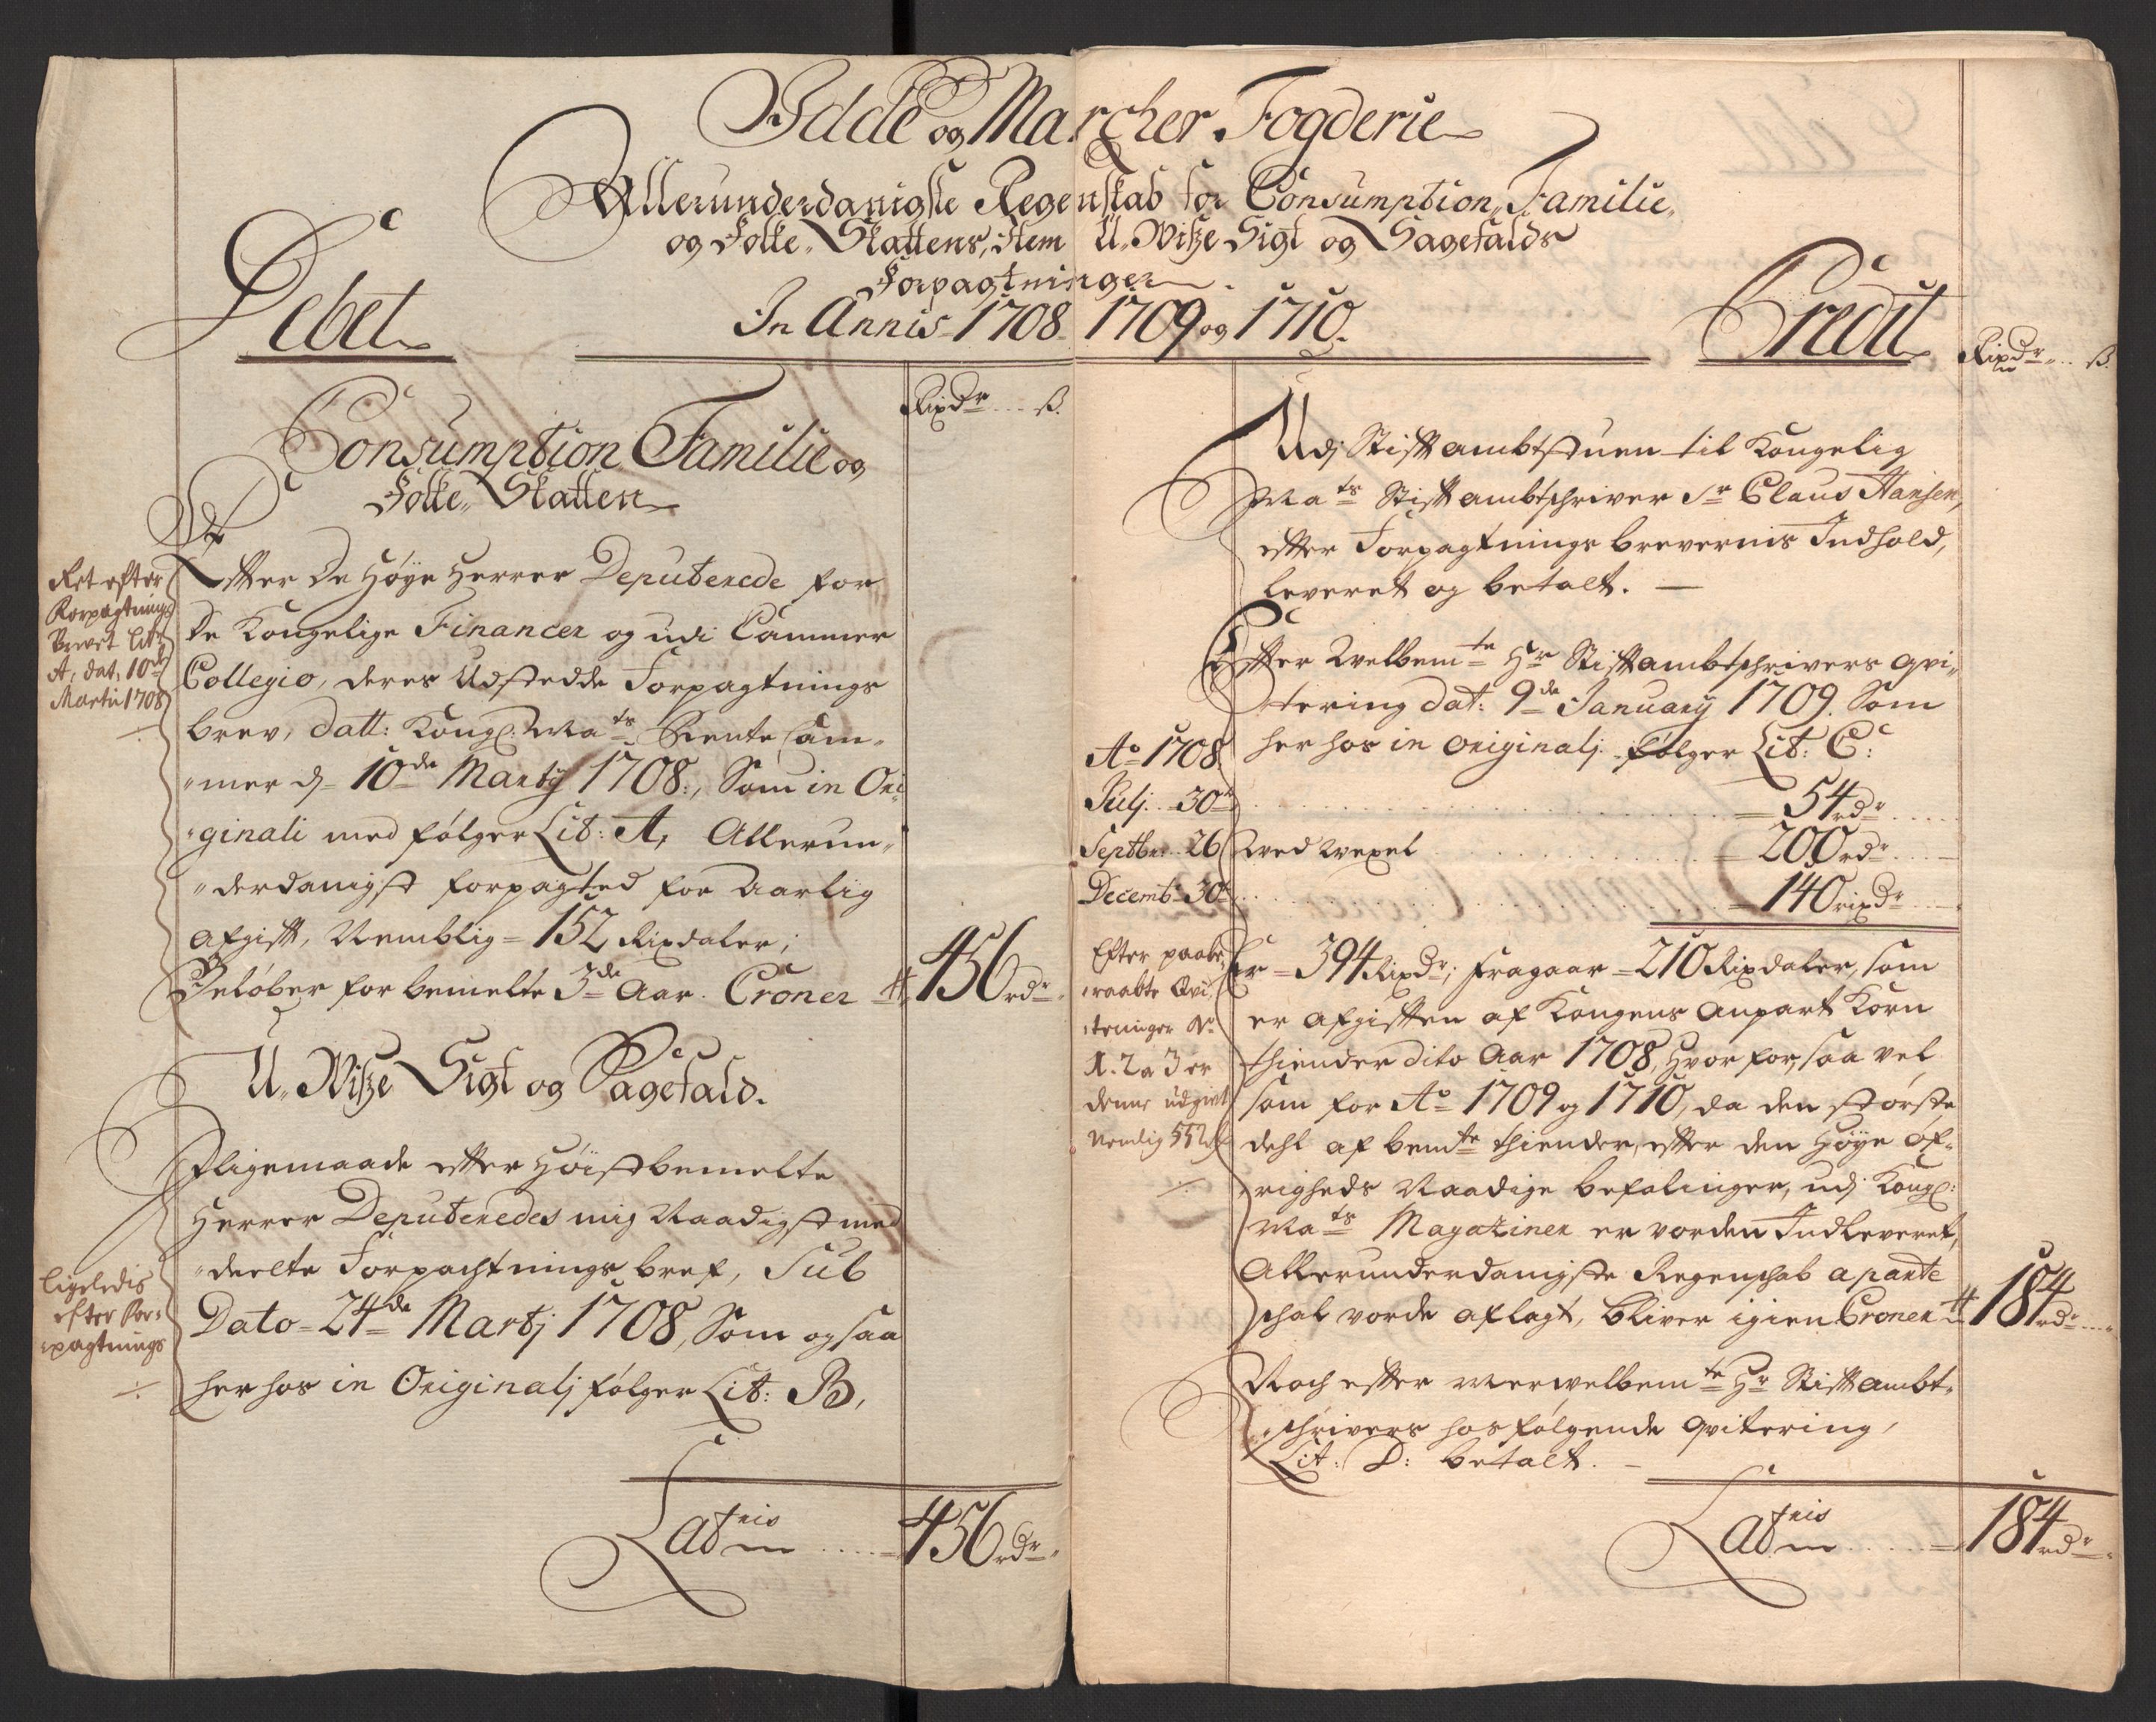 Idde og Marcher Fogderie
Allerunderdanigste Regenskab for Consumption, Familie,
og Folke, Skattens, Item U,, Wiße Sigt og Sagefalds
Forpagtninger.
In Annis 1708 1709 og 1710.
Debet
Rixdr ß.
Consumption Familie og
Folke,, Skatten
Ret efter
Forpagtnings
Brevet Litr
A, dat. 10de
Martii 1708
Effter De Høye Herrer Deputerede for
De Kongelige Financer og udi Cammer
Collegio, deres Udstedde Forpagtnings
brev, datt: Kongl: Mats Rente Cam,,
,,mer dj 10de Martij 1708:, Som in Ori,,
,,ginali med følger Lit: A, Allerun,,
,,derdanigst forpagted for Aarlig
afgifft, Nemblig = 152 Rixdaler;
Beløber for bemelte 3de Aar. Croner 456 rdr
U,, Wiße Sigt og Sagefald.
Ligemaade effter Høistbemelte
Herrer Deputeredes mig Naadigst med
,,deelte Forpachtnings bref, Sub
Dato = 24de Martj 1708, Som og saa
her hos in Originalj følger Lit: B,
Ligeledis
efter For=
pagtnings
Latris
456 rdr
Credit
Rixdr ß.
Udj Stifftambtstuen til Kongelig
Mats Stifftambtschriver Sr Claus Hansen,
effter Forpagtnings brevernis Indhold,
leveret og betalt.
Effter Welbemte Hr Stifftambtschrivers qvi,,
tering dat: 9de January 1709. Som
her hos in originalj følger Lit: C:
Ao 1708.
Julj. 30 54 rdr
Septbr: 26 Med Wexel 200 rdr
Decembr 30 140 rixdr
Efter paabe,
,raabte Qvi,
,teringer No
1. 2 a 3 er
denne udgivt
Nemlig 552
Er = 394 Rixdr; Fragaar = 210 Rixdaler, som
er afgifften af Kongens anpart Korn
thiender dito Aar 1708, Hvor for, saa vel
som for Ao 1709 og 1710, da den største
dehl af bemte thiender, effter den Høye Øf,,
righeds Naadige befalinger, udj Kongl:
Mats Magaziner er vorden Indleveret,
Allerunderdanigste Regenschab aparte
schal vorde aflagt, bliver igien Croner 184 rdr
Noch effter merwelbemte Hr Stifftambt,,
,,schrivers hos følgende qvitering,
Lit: D: betalt.
Latris
184 rdr